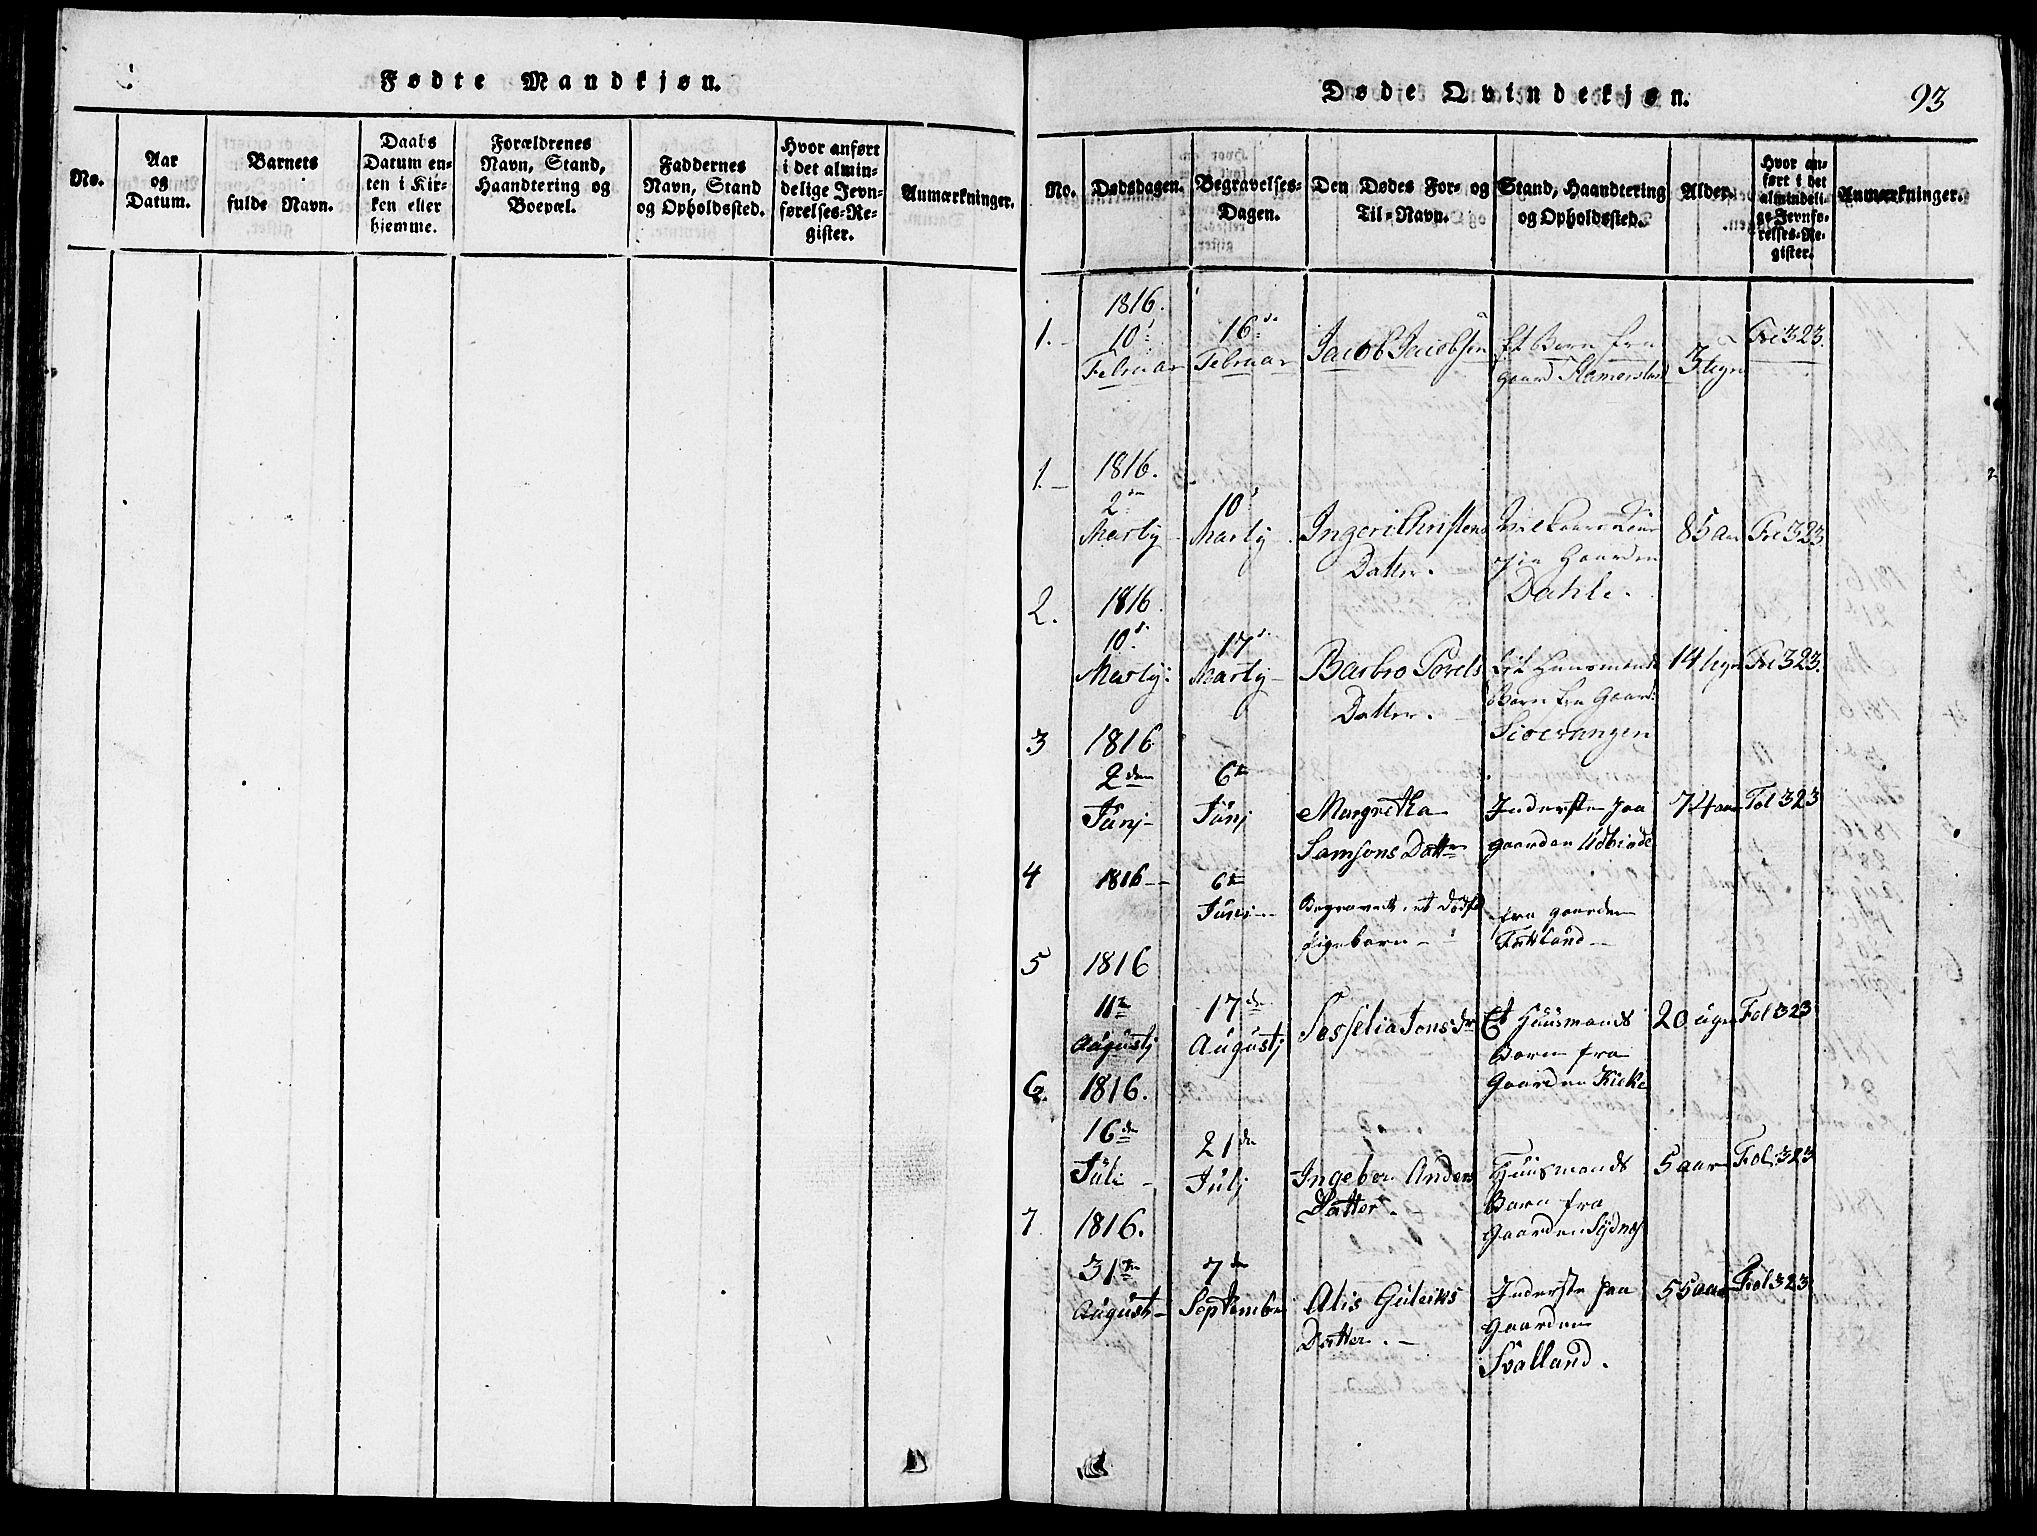 Fødte Mandkjøn.
No.
Aar
og
Datum.
Barnets
fulde Navn.
Daabs
Datum en-
ten i Kir-
ken eller
hjemme.
Forældrenes
Navn, Stand,
Haandtering og
Boepæl.
Faddernes
Navn, Stand
og Opholdssted.
Hvor anført
i det almin-
delige Jevn-
førelses-Re-
gister.
Anmærkninger.
Døde Qvindekjøn.
93
No.
Dødsdagen.
Begravelses-
Dagen.
Den Dødes For- og
Til-Navn.
Stand, Haandtering
og Opholdssted.
Alder.
Hvor an-
ført i det
almindeli-
ge Jevnfø-
relses-Re-
gister.
Anmærkninger.
1.
1816.
10
Februar
16
Februar
Jacob Jacobsen
Et Barn fra
gaard
3
323.
1.
1816.
2den
Martij
10
Martij
Ingeri Christens
Datter.
Gaarden
Dahle.
85 aar
323
2.
1816.
10
Martij
17
Martij
Barbro Povels
Datter.
Huusmands
Barn fra Gaard
14
323.
3
1816
2den
Junj
6te
Junj
Margretha
Samsons Datter
Inderste paa
gaarden Udbinde
74 aar
Fol 323
4
1816
6te
Junj
Begravet et Dødfød
Pigebarn
fra gaarden
Fattland
5
1816
11te
Augustj
17de
Augustj
Sesselia Jons dr
Et Huusmands
Barn fra
Gaarden Kirke
20 uger
Fol 323
6.
1816.
16de
Juli
21de
Julj
Ingebor Anders
Datter.
Huusmands
Barn fra
Gaarden Sydnes
5 aar
Fol. 323
7
1816.
31te
August
7de
September
Alis Guleiks
Datter.
Inderste paa
Gaarden
Svalland.
55 aar
Fol 323